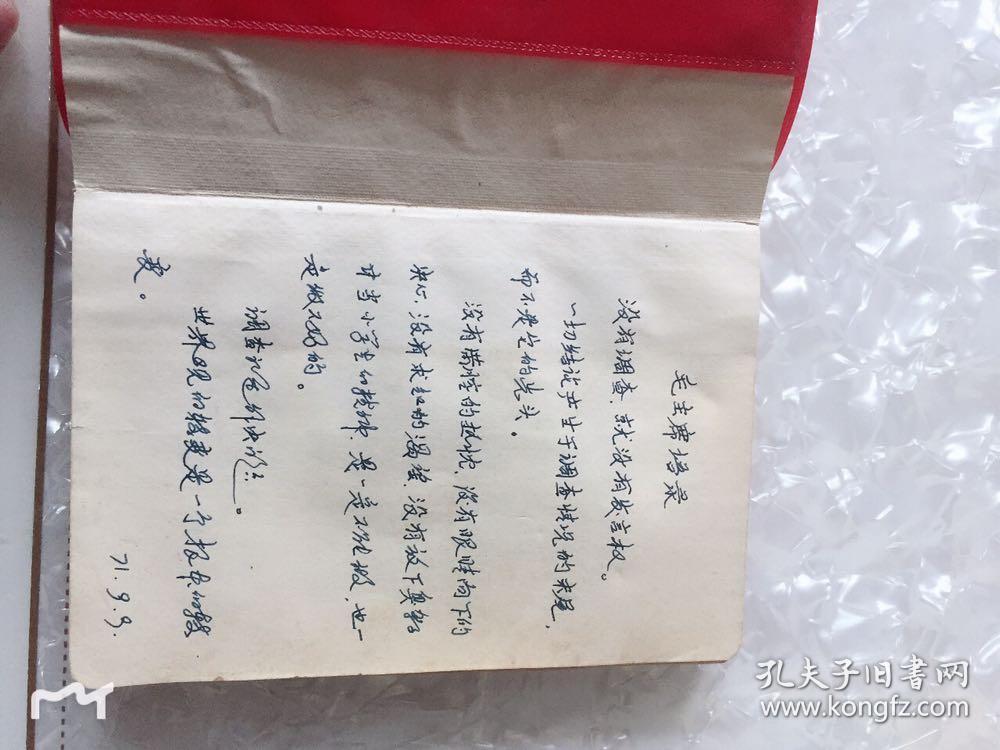 毛主席语录
没有调查，就没有发言权。
一切结论产生于调查情况的末尾，
而不是它的先头。
没有满腔的热忱，没有眼睛向下的
决心，没有求知的渴望，没有放下臭架
子、甘当小学生的精神，是一定不能做，也一
定做不好的。
调查就是解决问题。
世界观的转变是一个根本的转
变。
71.9.9.
孔夫子旧書网
www.kongfz.com